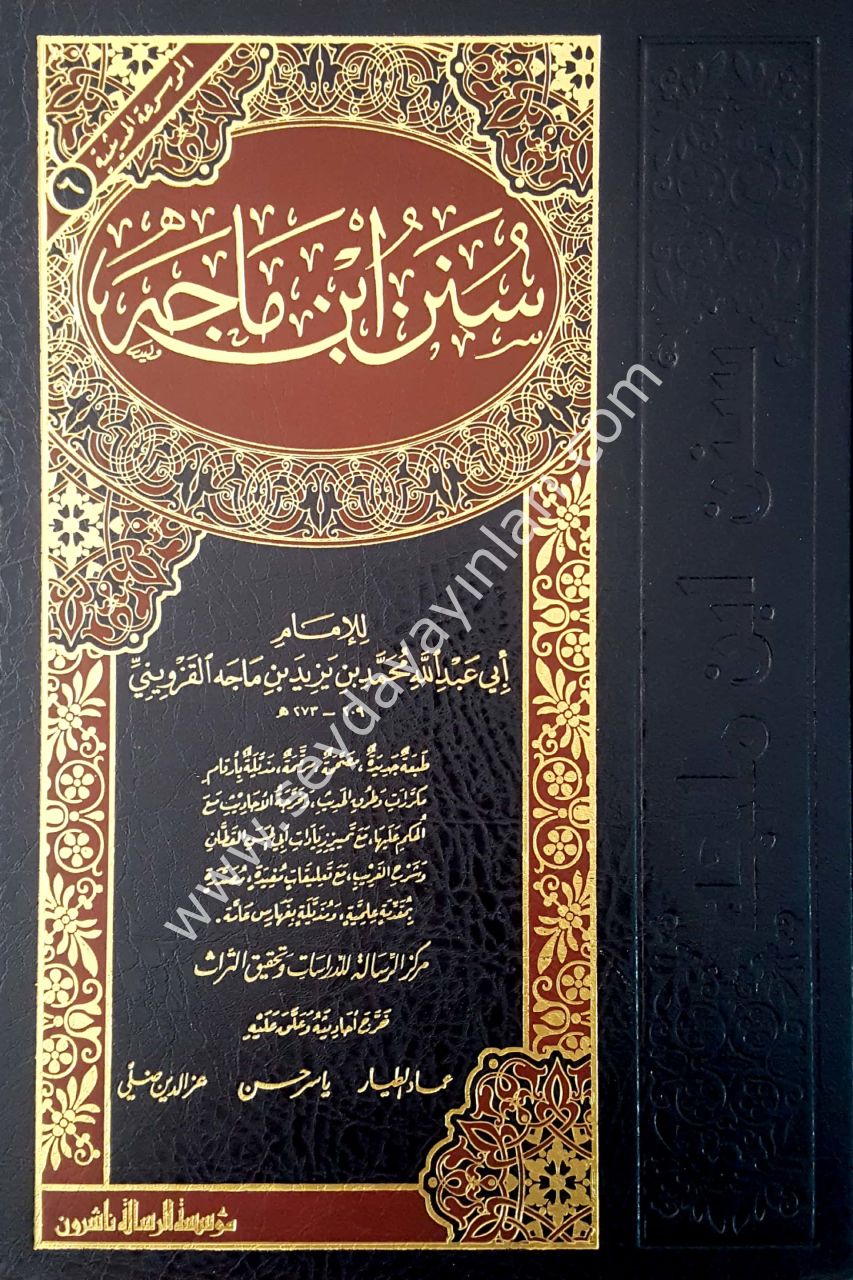 الموسوعة الحديثية
٦
سُنَنُ ابْنِ مَاجَه
لِلإِمَامِ
أَبِي عَبْدِ اللَّهِ مُحَمَّدِ بنِ يَزِيدَ بنِ مَاجَه القَزْوِينيِّ
٢٠٩ - ٢٧٣ هـ
طبعة جديدة، مذيَّلة بأرقام
مكررات وطرق الحديث، الأحاديث مع
الحكم عليها، مع تمييز زيادات أبي الحسن القطان
وشرح الغريب، مع تعليقات مفيدة،
بمقدمة علمية، ومذيَّلة بفهارس عامة.
مركز الرسالة للدراسات وتحقيق التراث
خرَّج أحاديثه وعلَّق عليه
عماد الطيار ياسر حسن عز الدين ضلي
مؤسسة الرسالة ناشرون
سنن ابن ماجه
www.sevdayayinlari.com